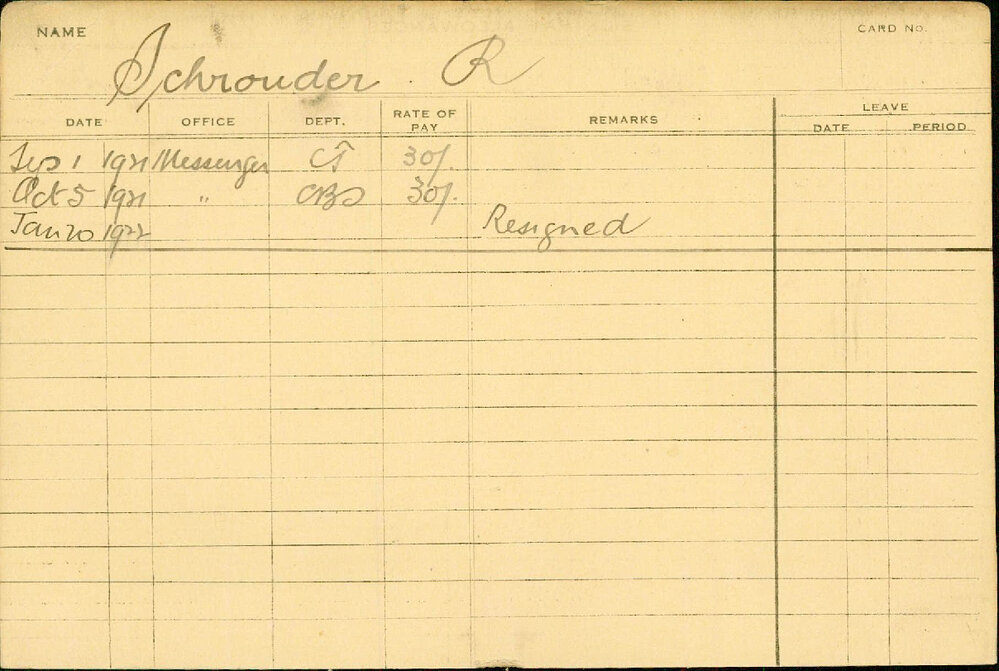 NAME Schrouder. R CARD NO.
DATE OFFICE DEPT. RATE OF PAY REMARKS LEAVE DATE PERIOD
Sep 1 1921 Messenger CT 30/.
Oct 5 1921 " CBS 30/.
Jan 20 1922 Resigned